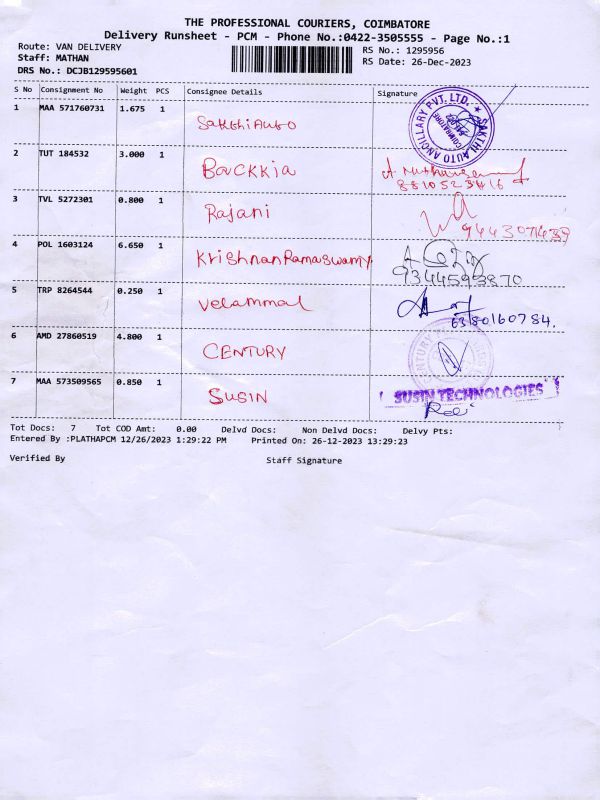 THE PROFESSIONAL COURIERS, COIMBATORE
Delivery Runsheet - PCM - Phone No.:0422-3505555 - Page No.:1
Route: VAN DELIVERY
RS No.: 1295956
Staff: MATHAN
RS Date: 26-Dec-2023
DRS No.: DCJB129595601
S No Consignment No Weight PCS Consignee Details Signature
1 MAA 571760731 1.675 1 Sakthi Auto
SAKTHI AUTO ANCILLARY PVT. LTD. COIMBATORE
2 TUT 184532 3.000 1 Backkia
8810523416
3 TVL 5272301 0.800 1 Rajani
4 POL 1603124 6.650 1 Krishnan Ramaswamy
9344593870
5 TRP 8264544 0.250 1 Velammal
6380160784.
6 AMD 27860519 4.800 1 CENTURY
CENTURY
7 MAA 573509565 0.850 1 SUSIN
SUSIN TECHNOLOGIES
Tot Docs: 7 Tot COD Amt: 0.00 Delvd Docs: Non Delvd Docs: Delvy Pts:
Entered By :PLATHAPCM 12/26/2023 1:29:22 PM Printed On: 26-12-2023 13:29:23
Verified By Staff Signature